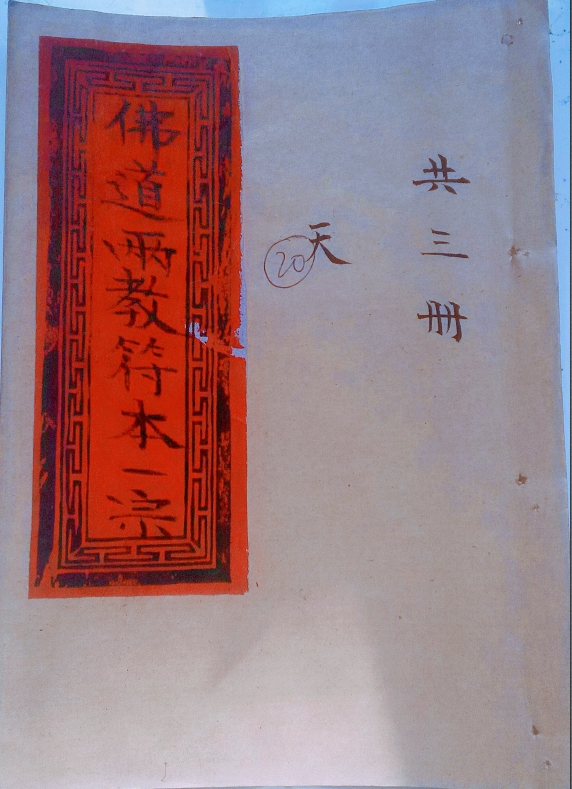 共三冊
天
20
佛道兩教符本一宗